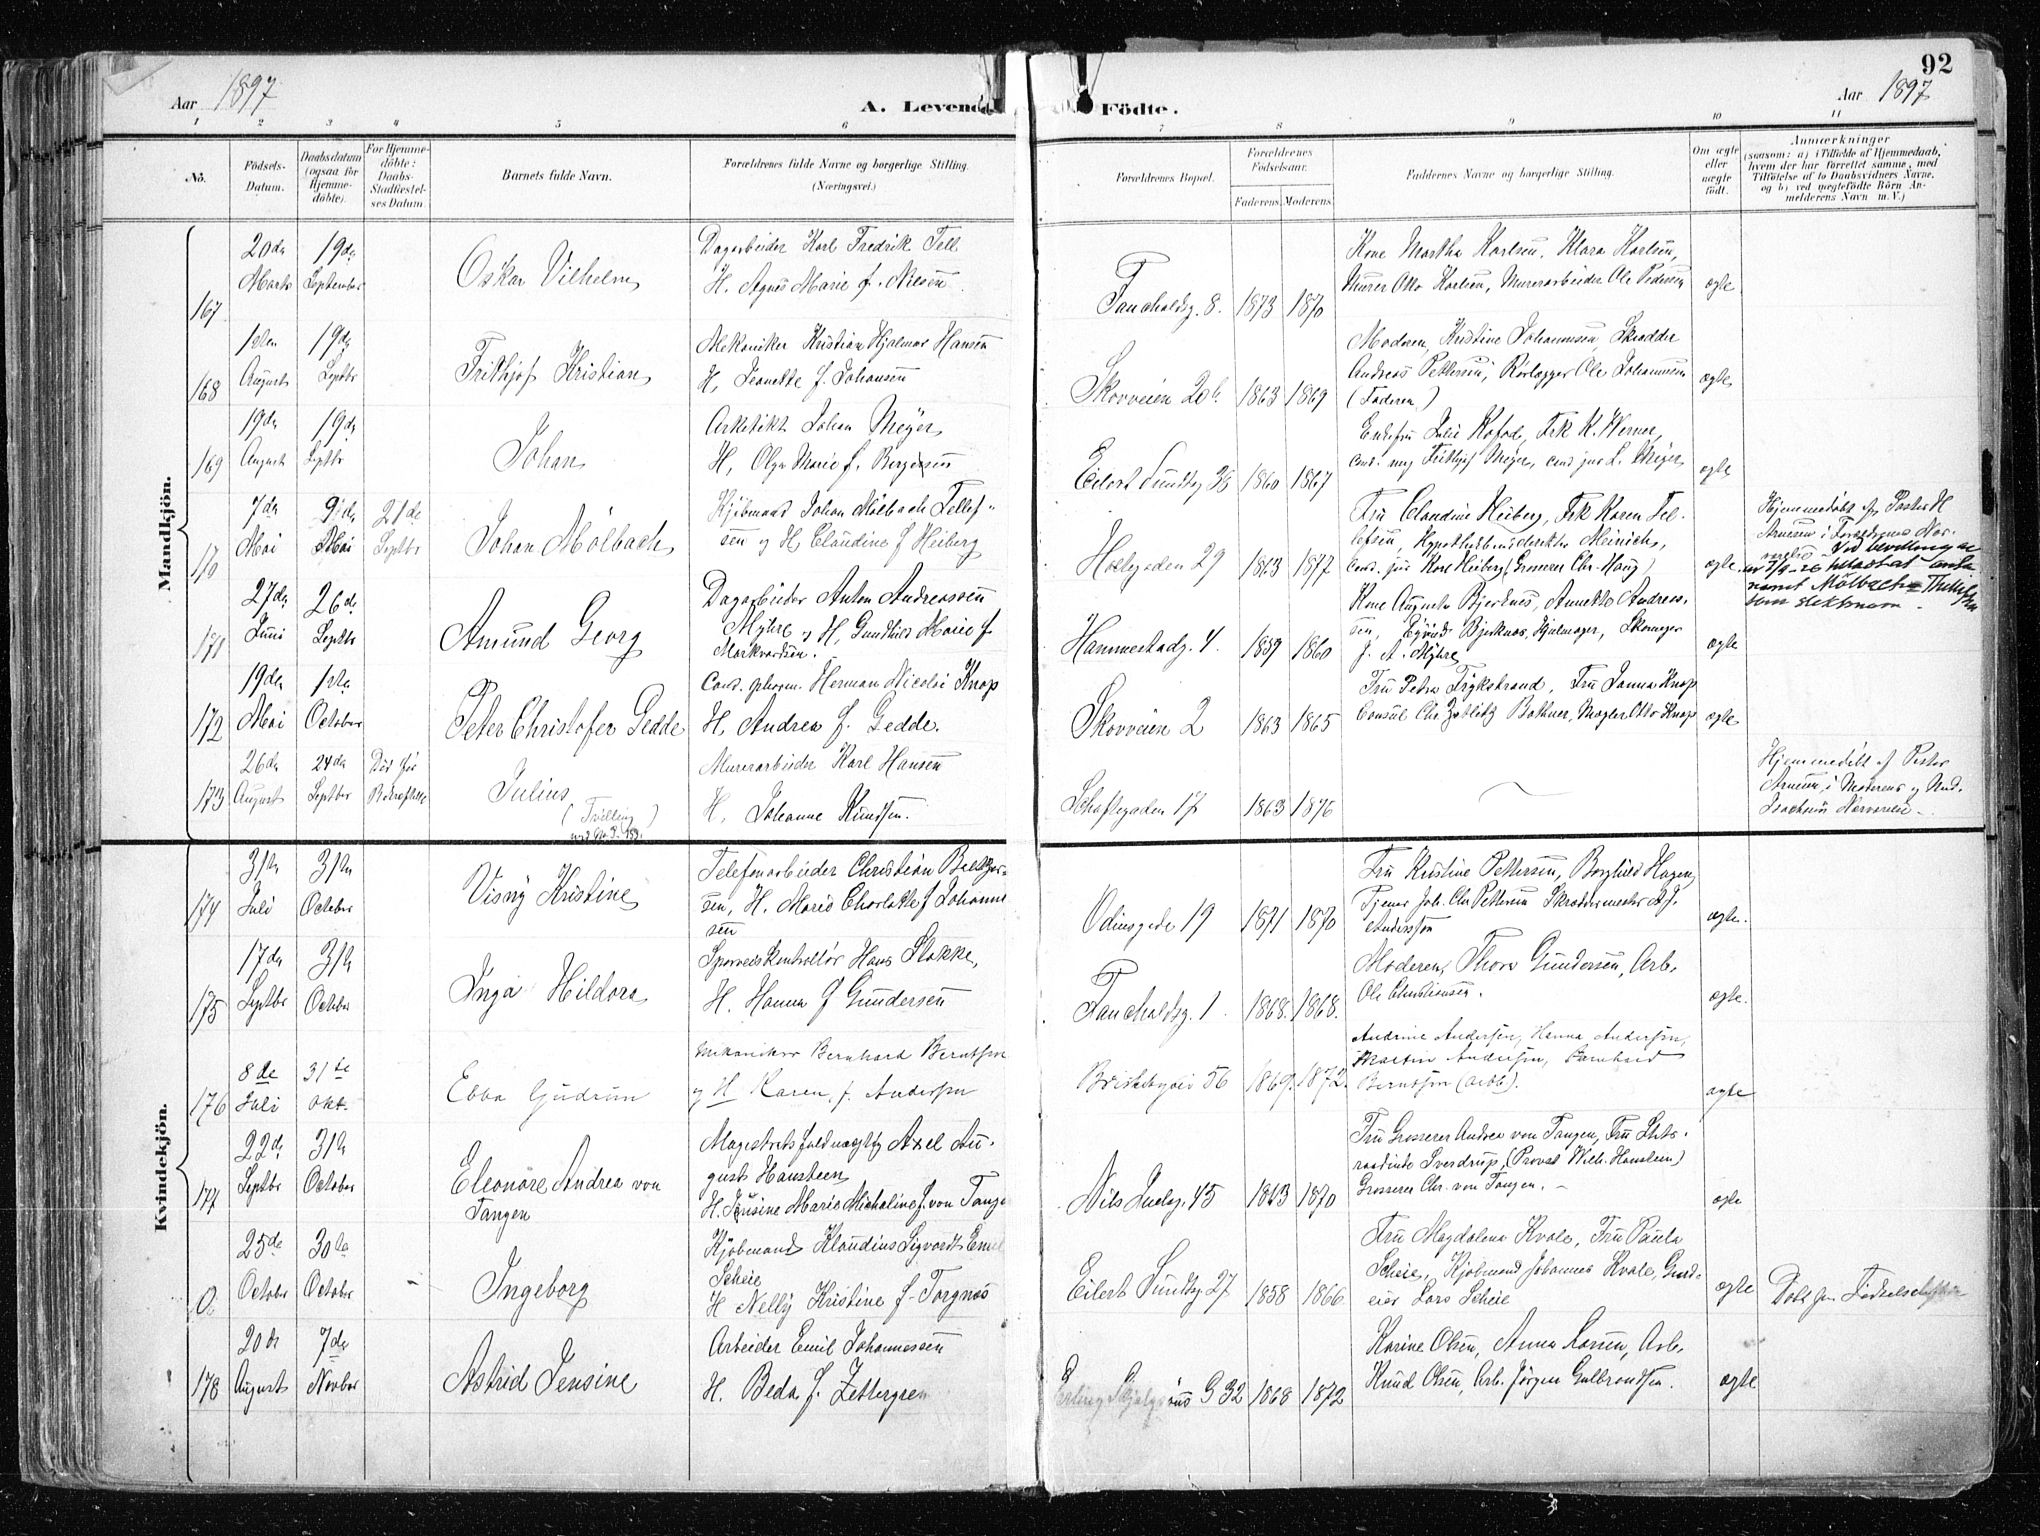 92
Aar 1897
A. Levende Födte.
Aar 1897
1 2 3 4 5 6 7 8 9 10 11
No.
Födsels-Datum.
Daabsdatum (ogsaa for Hjemmedöbte).
For Hjemmedöbte: Daabs-Stadfæstelses Datum
Barnets fulde Navn.
Forældrenes fulde Navne og borgerlige Stilling. (Næringsvei.)
Forældrenes Bopæl.
Forældrenes Födselsaar.
Faderens. Moderens.
Faddernes Navne og borgerlige Stilling.
Om ægte eller uægte født.
Anmærkninger
(saasom: a) i Tilfælde af Hjemmedaab, hvem der har forrettet samme, med Tilföielse af to Daabsvidners Navne, og b) ved uegtefödte Börn Anmelderens Navn m. V.)
Mandkjön.
167
20de Marts
19de September
Oskar Vilhelm
Dagarbeider Karl Fredrik Tell
H. Agnes Marie f. Nilsen
Fauchaldsg. 8.
1873
1870
Kone Martha Karlsen, Klara Karlsen,
Murer Otto Karlsen, Murerarbeider Ole Pedersen
ægte
168
1ste August
19de Septbr
Frithjof Kristian
Mekaniker Kristian Hjalmar Hansen
H, Jeanette f. Johansen
Skovveien 20b.
1863
1869
Moderen, Kristine Johannesen, Skrædder
Andreas Pettersen, Rørlægger Ole Johannesen
(Faderen)
ægte
169
19de August
19de Septbr
Johan
Arkitekt Johan Meyer
H, Olga Marie f. Bergersen
Eilert Sundtsg 36
1860
1867
Enkefru Julie Kofod, Frk K. Werner,
cand. mag Frithjof Meyer, cand jur L. Meyer
ægte
170
7de Mai
9de Mai
21de Septbr
Johan Mölbach
Kjöbmand Johan Mölbach Tellef-
sen og H. Claudine f Heiberg
Holtegaden 29
1863
1877
Fru Claudine Heiberg, Frk Karen Tel-
lefsen, Hypothekbankdirektør Meinich,
Cand. jur Karl Heiberg (Grosserer Chr. Haug)
ægte
Hjemmedöbt af Pastor H
Arnesen i Forældrenes Nær-
værelse - Ved bevilling av
7/9-26 antat
navnet Mölbach-Thellefsen
som slektsnavn.
171
27de Juni
26de Septbr
Amund Georg
Dagarbeider Anton Andreassen
Myhre og H, Gunhild Marie f
Markvardsen.
Hammerstadg. 4.
1859
1860
Kone Augusta Bjerknes, Annette Andreas-
sen, Eyvind Bjerknes, Hjulmager, Skomager
J. A. Myhre
ægte
172
19de Mai
1ste October
Peter Christofer Gedde
Cand. pharm. Herman Nicolai Knap
H. Andrea f. Gedde.
Skovveien 2
1863
1865
Fru Petra Frykstrand, Fru Janna Knap
Consul Chr Bothner, Mægler Otto Knap
ægte
173
26de August
24de Septbr
Død før
Julius
(Tvilling
)
Murerarbeider Karl Hansen
H. Johanne Knudsen.
Schaftegaden 17
1863
1876
Hjemmedöbt af Pastor
Arnesen i Moderens og
Nærværelse
Kvindekjön.
174
31te Juli
31te October
Visny Kristine
Telefonarbeider Christian Birger-
sen, H. Marie Charlotte f Johanne
sen
Odinsgade 19
1871
1870
Fru Kristine Pettersen, Borghild Hagen,
Tjener Joh. Chr Pettersen Skræddermester A. J.
Andersson
ægte.
175
17de Septbr
31te October
Inga Hildora
Sporveiskontrollør Hans Stokke,
H. Hanna f Gundersen
Fauchaldsg. 1
1868.
1868.
Moderen, Thora Gundersen, Arb.
Ole Christiansen.
ægte.
176
8de Juli
31te Okt.
Ebba Gudrun
Mekaniker Bernhard Berntsen
og H Karen, f. Andersen
Briskebyvei 56
1869.
1872.
Andrine Andersen, Hanna Andersen,
Martin Andersen, Bernhard
Berntsen (arbb).
ægte
177
22de Septbr
31te October
Eleonore Andrea von
Tangen
Magistratsfuldmægtig Axel Au-
gust Hansteen
H. Jensine Marie Michaline f. von Tange
Nils Juelsg. 45
1843
1870
Fru Grosserer Andrea von Tangen, Fru Stats-
raadinde Sverdrup, (Provst Wilh. Hansteen)
Grosserer Chr. von Tangen.
ægte
0
25de October
30te October
Ingeborg
Kjøbmand Klaudius Sigvardt Emil
Scheie
H Nelly Kristine f. Torgnæs
Eilert Sundtsg 27
1858
1866
Fru Magdalena Kvale, Fru Paula
Scheie, Kjöbmand Johannes Kvale, Gaard-
eier Lars Scheie
ægte
Döbt paa Fødselsstiftelsen
178
20de August
7de Novbr
Astrid Jensine
Arbeider Emil Johannessen
H. Beda f. Zettergren
Erling Skjalgsøns G 32
1868
1872
Karine Olsen, Anna Larsen, Arb.
Knud Olsen, Arb. Jørgen Gulbrandsen.
ægte